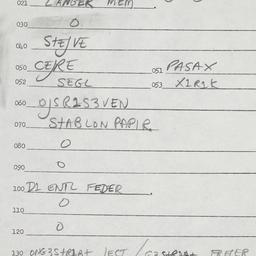 021 LANGER MEM
030 0
040 STEJVE
050 CEJRE 051 PASAX
052 SEGL 053 X1R1K
060 OJSR1S3VEN
070 STABLON PAPIR
080 0
090 0
100 D1 ENTL FEDER
110 0
120 0
130